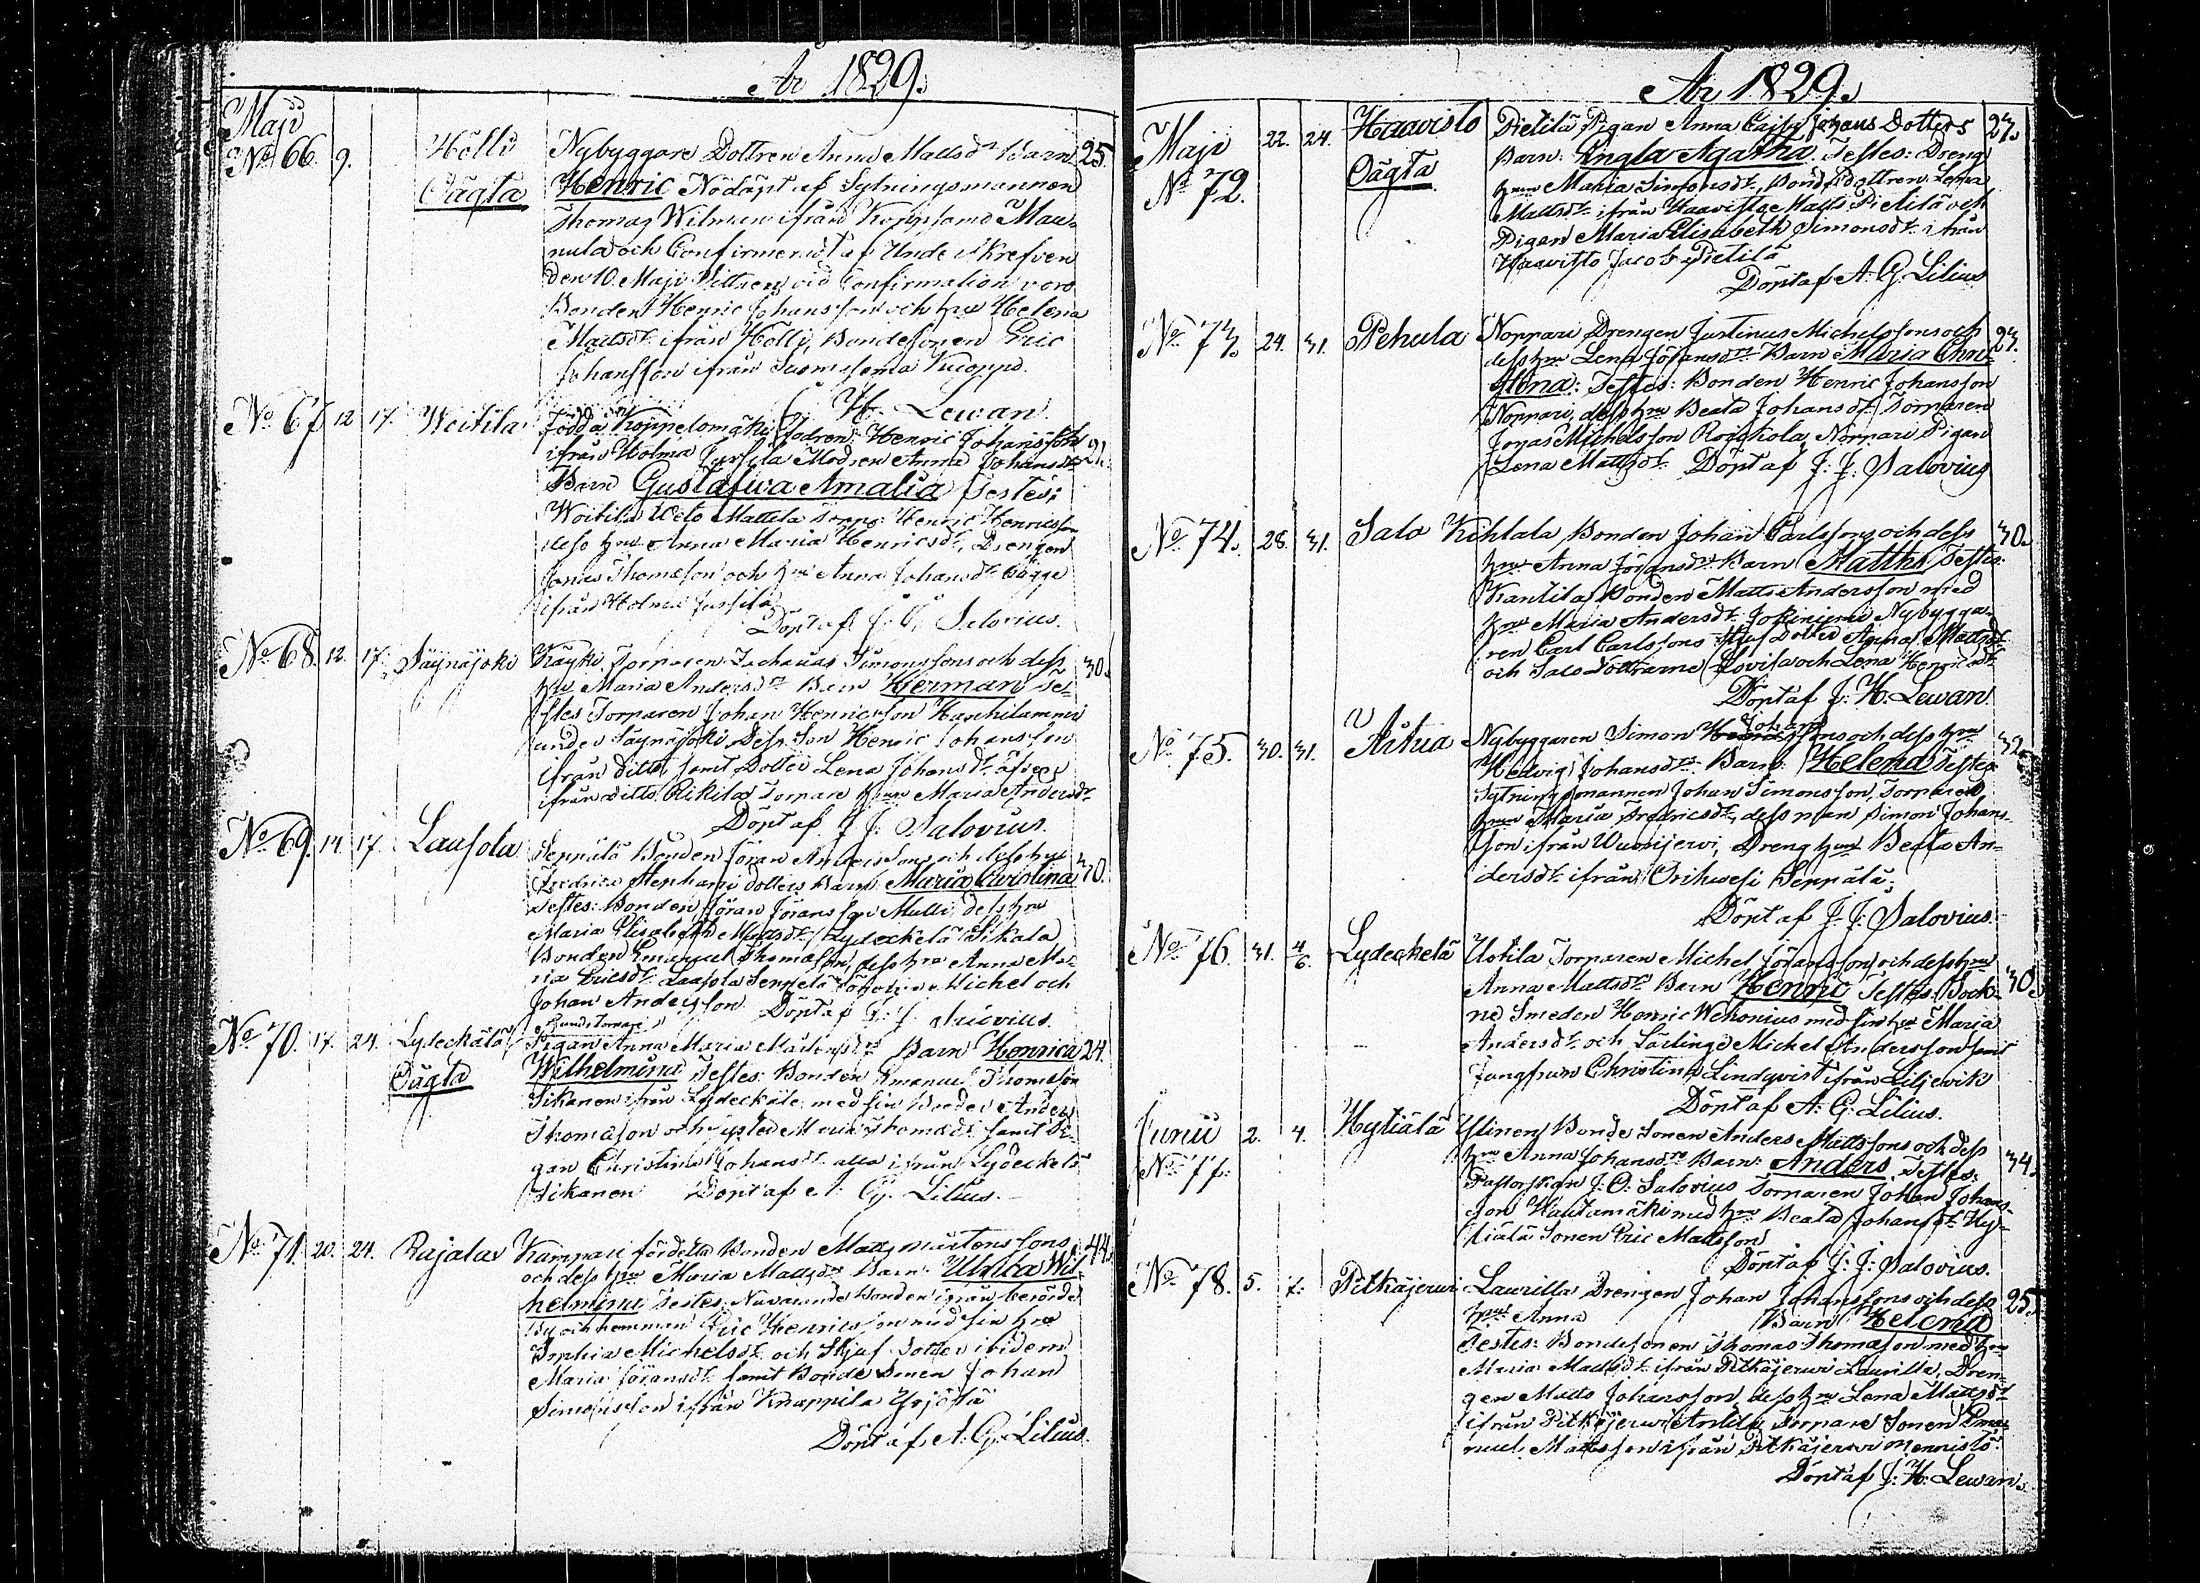 År 1829.
Maji
No 66. 9. Holli Nybyggare Dottren Anna Mattsdr Barn 25
Oägta Henric Nöddöpt af Sytningsmannen
Thomas Wilman ifrån
nula och Confirmeradt af Undeskrefven
den 10 Maji Vittnen vid Confirmation voro
Bonden Henric Johansson och hru Helena
Mattsdr ifrån Holli, Bondesonen Eric
Johansson ifrån
H. Lewan
No 67 12 17. Woitila födda Koppelomäki fodren Henric Johansson
ifrån Holma Jussila Modren Anna Johansdr 21.
Barn Gustafwa Amalia Testes:
Woitila Mattila Torp: Henric Henricsson
dess hru Anna Maria Henricsdr, Drengen
Jonas Thomasson och hru Anna Johansdr bägge
ifrån Holma Jussila
Döpt af J. Salovius.
No 68. 12 17. Säynäjoki Käyki Torparen Zachaeus Simonssons och dess 30.
hru Maria Andersdrs Barn Herman Te-
stes Torparen Johan Henricsson
under Säynäjoki Dess Son Henric Johansson
ifrån ditto samt Dotter Lena Johansdr äfven
ifrån ditto Rikila Torpare hrun Maria Andersdr
Döpt af J. J: Salovius.
No 69. 14 17. Laasola Seppälä Bonden Jöran Anderssons och dess hru 30.
Fredrica Stephans dotters Barn Maria Carolina
Testes: Bonden Jöran Jöransson Mulli, dess hru
Maria Elisabeth Mattsdr Lydeckelä Sikala
Bonden Emanuel Thomasson, dess hru Anna Ma-
ria Ericsdr Laasola Seppelä Sönerne Michel och
Johan Andersson Döpt af J. J. Salovius.
No 70. 17. 24. Lydeckälä Pigan Anna Maria Mårtensdrs Barn Henrica 24.
Oägta Wilhelmina Testes: Bonden Emanuel Thomasson
Sikanen ifrån Lydeckäle med sin Broder Anders
Thomasson och syster Maria Thomasdr samt Pi-
gan Christina Johansdr alla ifrån Lydeckelä
Sikanen Döpt af A. G. Lilius.
No 71. 20. 24. Rajalax Kampari fördetta Bonden Matts Mårtenssons 44.
och dess hru Maria Mattsdrs Barn: Ulrica Wil-
helmina Testes: Nuvarande Bonden ifrån berörde
By och hemman Eric Henricsson med sin hru
Sophia Michelsdr och Styf dotter ibidem
Maria Jöransdr samt Bonde Sonen Johan
Simonsson ifrån Knappila Yrjölä
Döpt af A. G. Lilius.
År 1829.
Maji 22. 24. Haavisto Pietilä Pigan Anna Cajsa Johans Dotters 27.
No 72. Oägta Barn: Angla Agatha. Testes: Dreng
hrun Maria Simonsdr, Bondedottren Lena
Mattsdr ifrån Haavisto Matts Pietilä och
Pigan Maria Elisabeth Simonsdr ifrån
Haavisto Jacob Pietilä
Döpt af A. G. Lilius
No 73. 24. 31. Pehula Noppari Drengen Justinus Michelssons och 27.
dess hru Lena Jöransdrs Barn Maria Chri-
stina: Testes: Bonden Henric Johansson
Noppari, dess hru Beata Johansdr Torparen
Jonas Michelsson Noppari Pigan
Lena Mattsdr Döpt af J: J: Salovius
No 74. 28. 31. Salo Kihlala Bonden Johan Carlssons och dess 30.
hru Anna Jöransdrs Barn Matths Testes:
Kantila Bonden Matts Andersson med
hru Maria Andersdr Jokiniemi Nybygga-
ren Carl Carlssons Styfdotter Anna Mattsdr
och Salo Döttrarne Lovisa och Lena Henricsdr
Döpt af J: H. Lewan
No 75. 30. 31. Aitua Nybyggaren Simon Johanssons och dess hru 32
Hedvig Johansdrs Barn: Helena Testes
Sytningsmannen Johan Simonsson, Torpare
hrun Maria Fredricsdr, dess man Simon Johans-
son ifrån Wuorijervi, Dreng hrun Beata An-
dersdr ifrån Orihvesi Seppälä;
Döpt af J. J: Salovius.
No 76. 31. 4/6. Lydeckelä Uotila Torparen Michel Jöranssons och dess hru 30.
Anna Mattsdrs Barn Henric Testes: Sock-
ne Smeden Henric Wekonius med sin hru Maria
Andersdr och Lärlinge Michel Andersson samt
Jungfrun Christina Lindqvist ifrån Liljevik
Döpt af A: G: Lilius.
Junii 2. 4. Hytiälä Ylinen Bonde Sonen Anders Mattssons och dess
No 77. hru Anna Johansdrs Barn: Anders. Testes: 34.
Pastorskan J. O. Salovius Torparen Johan Johans-
son Hautamäki med hru Beata Johansdr Hy-
tiälä Sonen Eric Mattsson
Döpt af J: J: Salovius.
No 78. 5. 7. Pitkäjerwi Laurilla Drengen Johan Johanssons och dess 25.
hru Anna Barn Helena
Testes: Bondesonen Thomas Thomasson med hru
Maria Mattsdr ifrån Pitkäjerwi Laurilla, Dren-
gen Matts Johansson, dess hru Lena Mattsdr
ifrån Pitkäjerwi Anttila Torpare Sonen Ema-
nuel Mattsson ifrån Pitkäjerwi Mennistö.
Döpt af J: H: Lewan.